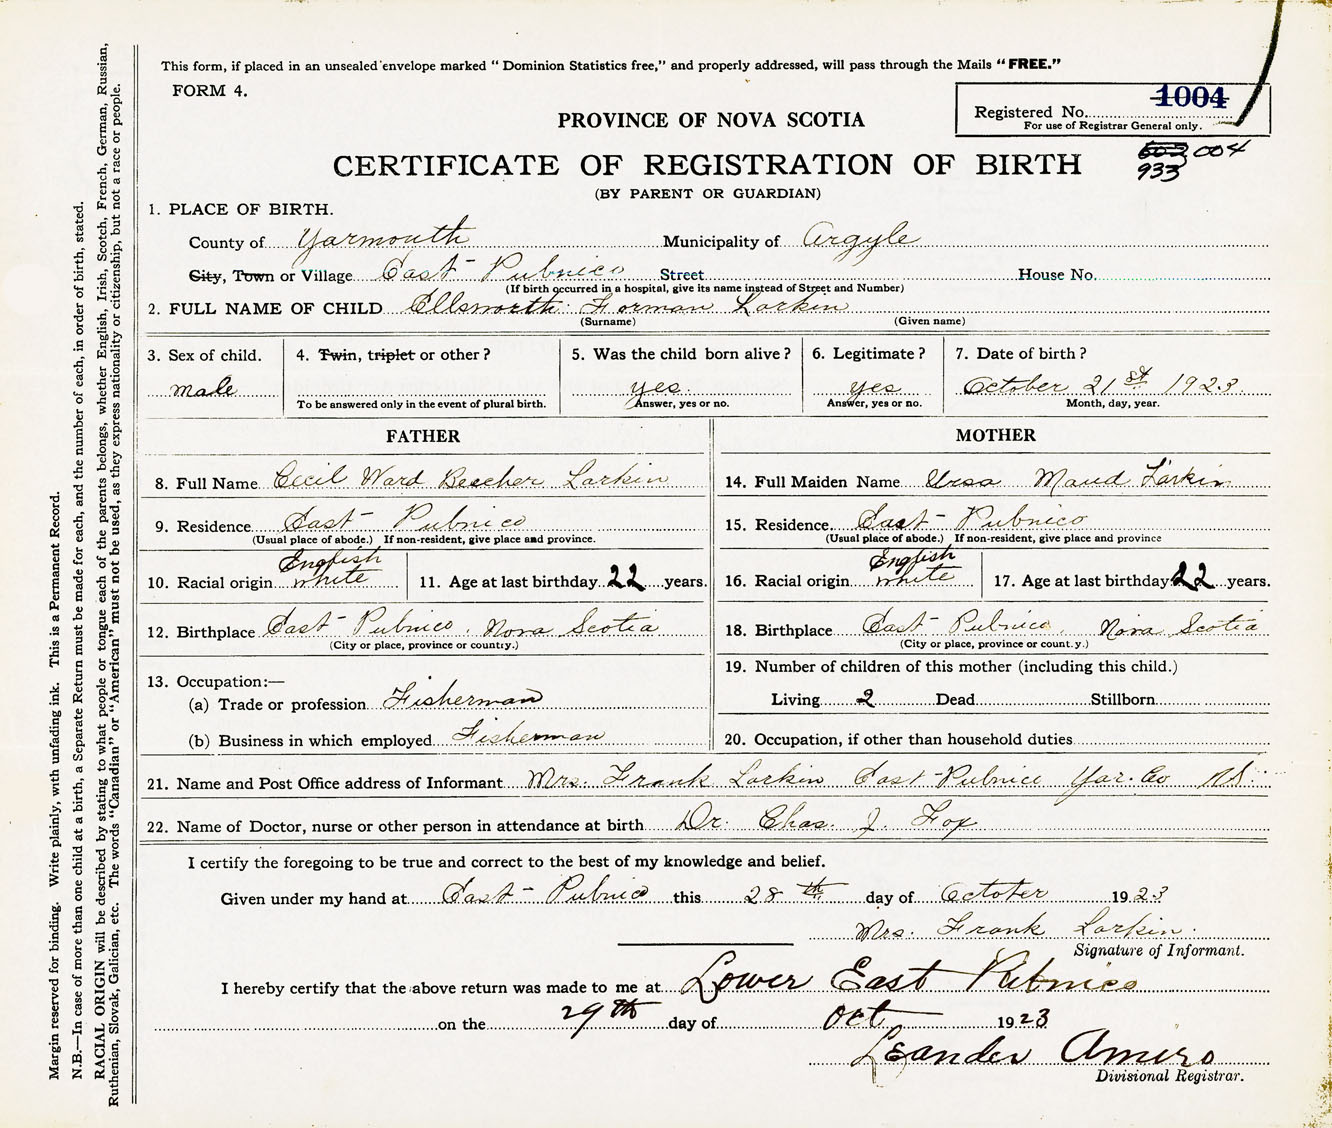 This form, if placed in an unsealed envelope marked "Dominion Statistics free," and properly addressed, will pass through the Mails "FREE."
FORM 4.
1004
Registered No.
For use of Registrar General only.
PROVINCE OF NOVA SCOTIA
CERTIFICATE OF REGISTRATION OF BIRTH
603 004
933
(BY PARENT OR GUARDIAN)
1. PLACE OF BIRTH.
County of Yarmouth Municipality of Argyle
City, Town or Village East Pubnico Street House No.
(If birth occurred in a hospital, give its name instead of Street and Number)
2. FULL NAME OF CHILD Ellsworth Forman Larkin
(Surname) (Given name)
3. Sex of child. 4. Twin, triplet or other? 5. Was the child born alive? 6. Legitimate? 7. Date of birth?
male yes. yes October 21st 1923
To be answered only in the event of plural birth. Answer, yes or no. Answer, yes or no. Month, day, year.
FATHER MOTHER
8. Full Name Cecil Ward Beecher Larkin 14. Full Maiden Name Ursa Maud Larkin
9. Residence East Pubnico 15. Residence. East Pubnico
(Usual place of abode.) If non-resident, give place and province. (Usual place of abode.) If non-resident, give place and province
English English
10. Racial origin white 11. Age at last birthday 22 years. 16. Racial origin white 17. Age at last birthday 22 years.
12. Birthplace East Pubnico, Nova Scotia 18. Birthplace East Pubnico, Nova Scotia
(City or place, province or country.) (City or place, province or country.)
13. Occupation:— 19. Number of children of this mother (including this child.)
(a) Trade or profession Fisherman Living 2 Dead Stillborn
(b) Business in which employed Fisherman 20. Occupation, if other than household duties
21. Name and Post Office address of Informant Mrs. Frank Larkin East Pubnico Yar. Co N.S.
22. Name of Doctor, nurse or other person in attendance at birth Dr. Chas. J. Fox
I certify the foregoing to be true and correct to the best of my knowledge and belief.
Given under my hand at East Pubnico this 28th day of October 1923
Mrs. Frank Larkin.
Signature of Informant.
I hereby certify that the above return was made to me at Lower East Pubnico
on the 29th day of Oct 1923
Leander Amiro
Divisional Registrar.
Margin reserved for binding. Write plainly, with unfading ink. This is a Permanent Record.
N.B.—In case of more than one child at a birth, a Separate Return must be made for each, and the number of each, in order of birth, stated.
RACIAL ORIGIN will be described by stating to what people or tongue each of the parents belongs, whether English, Irish, Scotch, French, German, Russian,
Ruthenian, Slovak, Galician, etc. The words "Canadian" or "American" must not be used, as they express nationality or citizenship, but not a race or people.